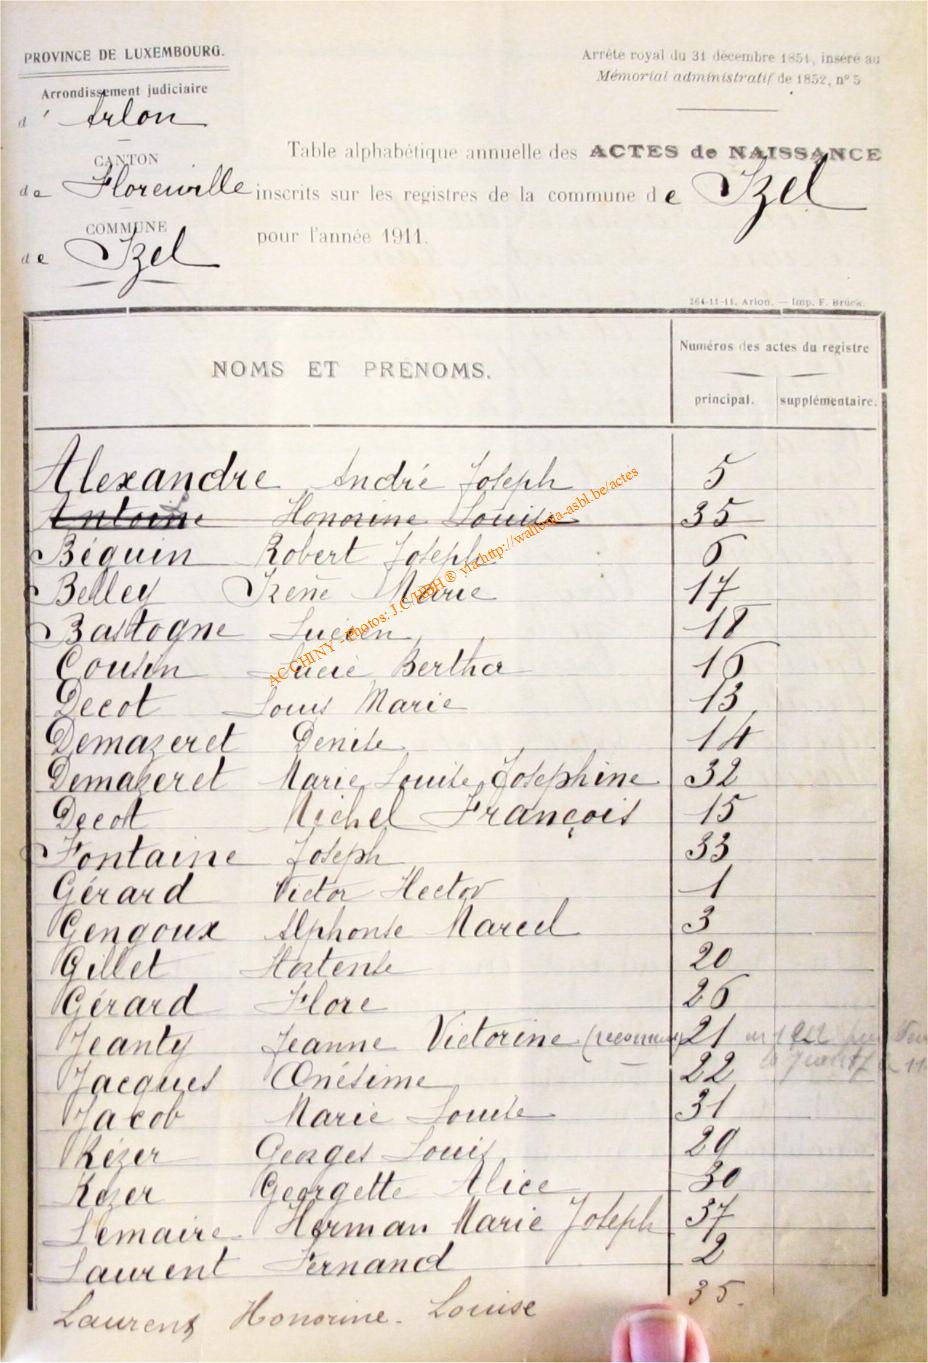 PROVINCE DE LUXEMBOURG.
Arrondissement judiciaire
d' Arlon
CANTON
de Florenville
COMMUNE
de Izel
Arrêté royal du 31 décembre 1851, inséré au
Mémorial administratif de 1852, n° 5
Table alphabétique annuelle des ACTES de NAISSANCE
inscrits sur les registres de la commune de Izel
pour l'année 1911.
264-11-11. Arlon. — Imp. F. Brück.
NOMS ET PRÉNOMS.
Numéros des actes du registre
principal. supplémentaire.
Alexandre André Joseph 5
Antoine Honorine Louise 35
Béguin Robert Joseph 6
Belley Irène Marie 17
Bastogne Lucien 18
Cousin Lucie Bertha 16
Decot Louis Marie 13
Demazeret Denise 14
Demazeret Marie Louise Joséphine 32
Decot Michel François 15
Fontaine Joseph 33
Gérard Victor Hector 1
Gengoux Alphonse Marcel 3
Gillet Hortense 20
Gérard Flore 26
Jeanty Jeanne Victorine 21
Jacques Onésime 22
Jacob Marie Louise 31
Kézer Georges Louis 29
Kezer Georgette Alice 30
Lemaire Herman Marie Joseph 37
Laurent Fernand 2
Laurent Honorine. Louise 35.
AC CHINY - Photos: J.C/HBH ® via http://wallonia-asbl.be/actes